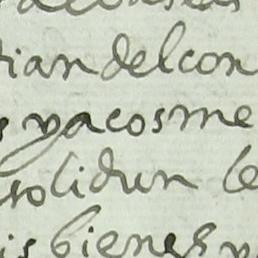 tian del con
s y a cosme
solidun le
is bienes y